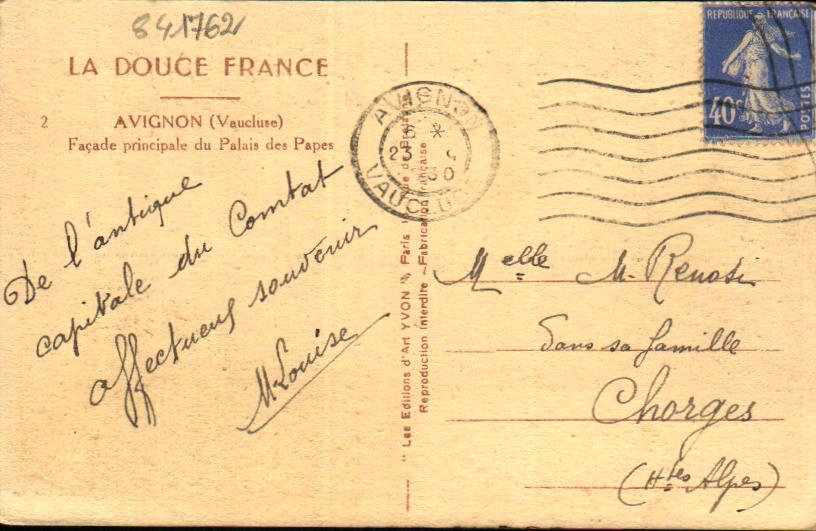 841762
LA DOUCE FRANCE
2 AVIGNON (Vaucluse)
Façade principale du Palais des Papes
De l'antique
capitale du Comtat
affectueux souvenir
M Louise
AVIGNON
23
30
VAUCLUSE
" Les Editions d'Art YVON " Paris
Reproduction Interdite — Fabrication Française
REPUBLIQUE FRANÇAISE
40c
POSTES
Melle M. Renosi
dans sa famille
Chorges
(Htes Alpes)